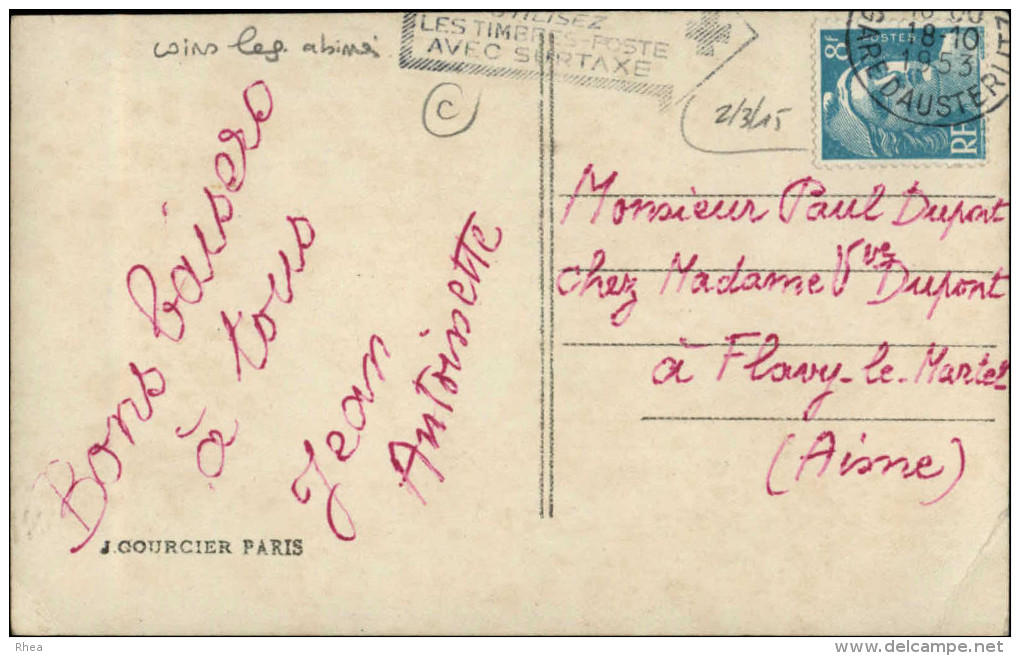 coins leg. abimés
UTILISEZ
LES TIMBRES-POSTE
AVEC SURTAXE
C
2/3/15
8F
POSTES
RF
18-10
1953
GARE D'AUSTERLITZ
Bons baisers
à tous
Jean
Antoinette
Monsieur Paul Dupont
chez Madame Vve Dupont
à Flavy-le-Martel
(Aisne)
J.GOURCIER PARIS
Rhea
www.delcampe.net